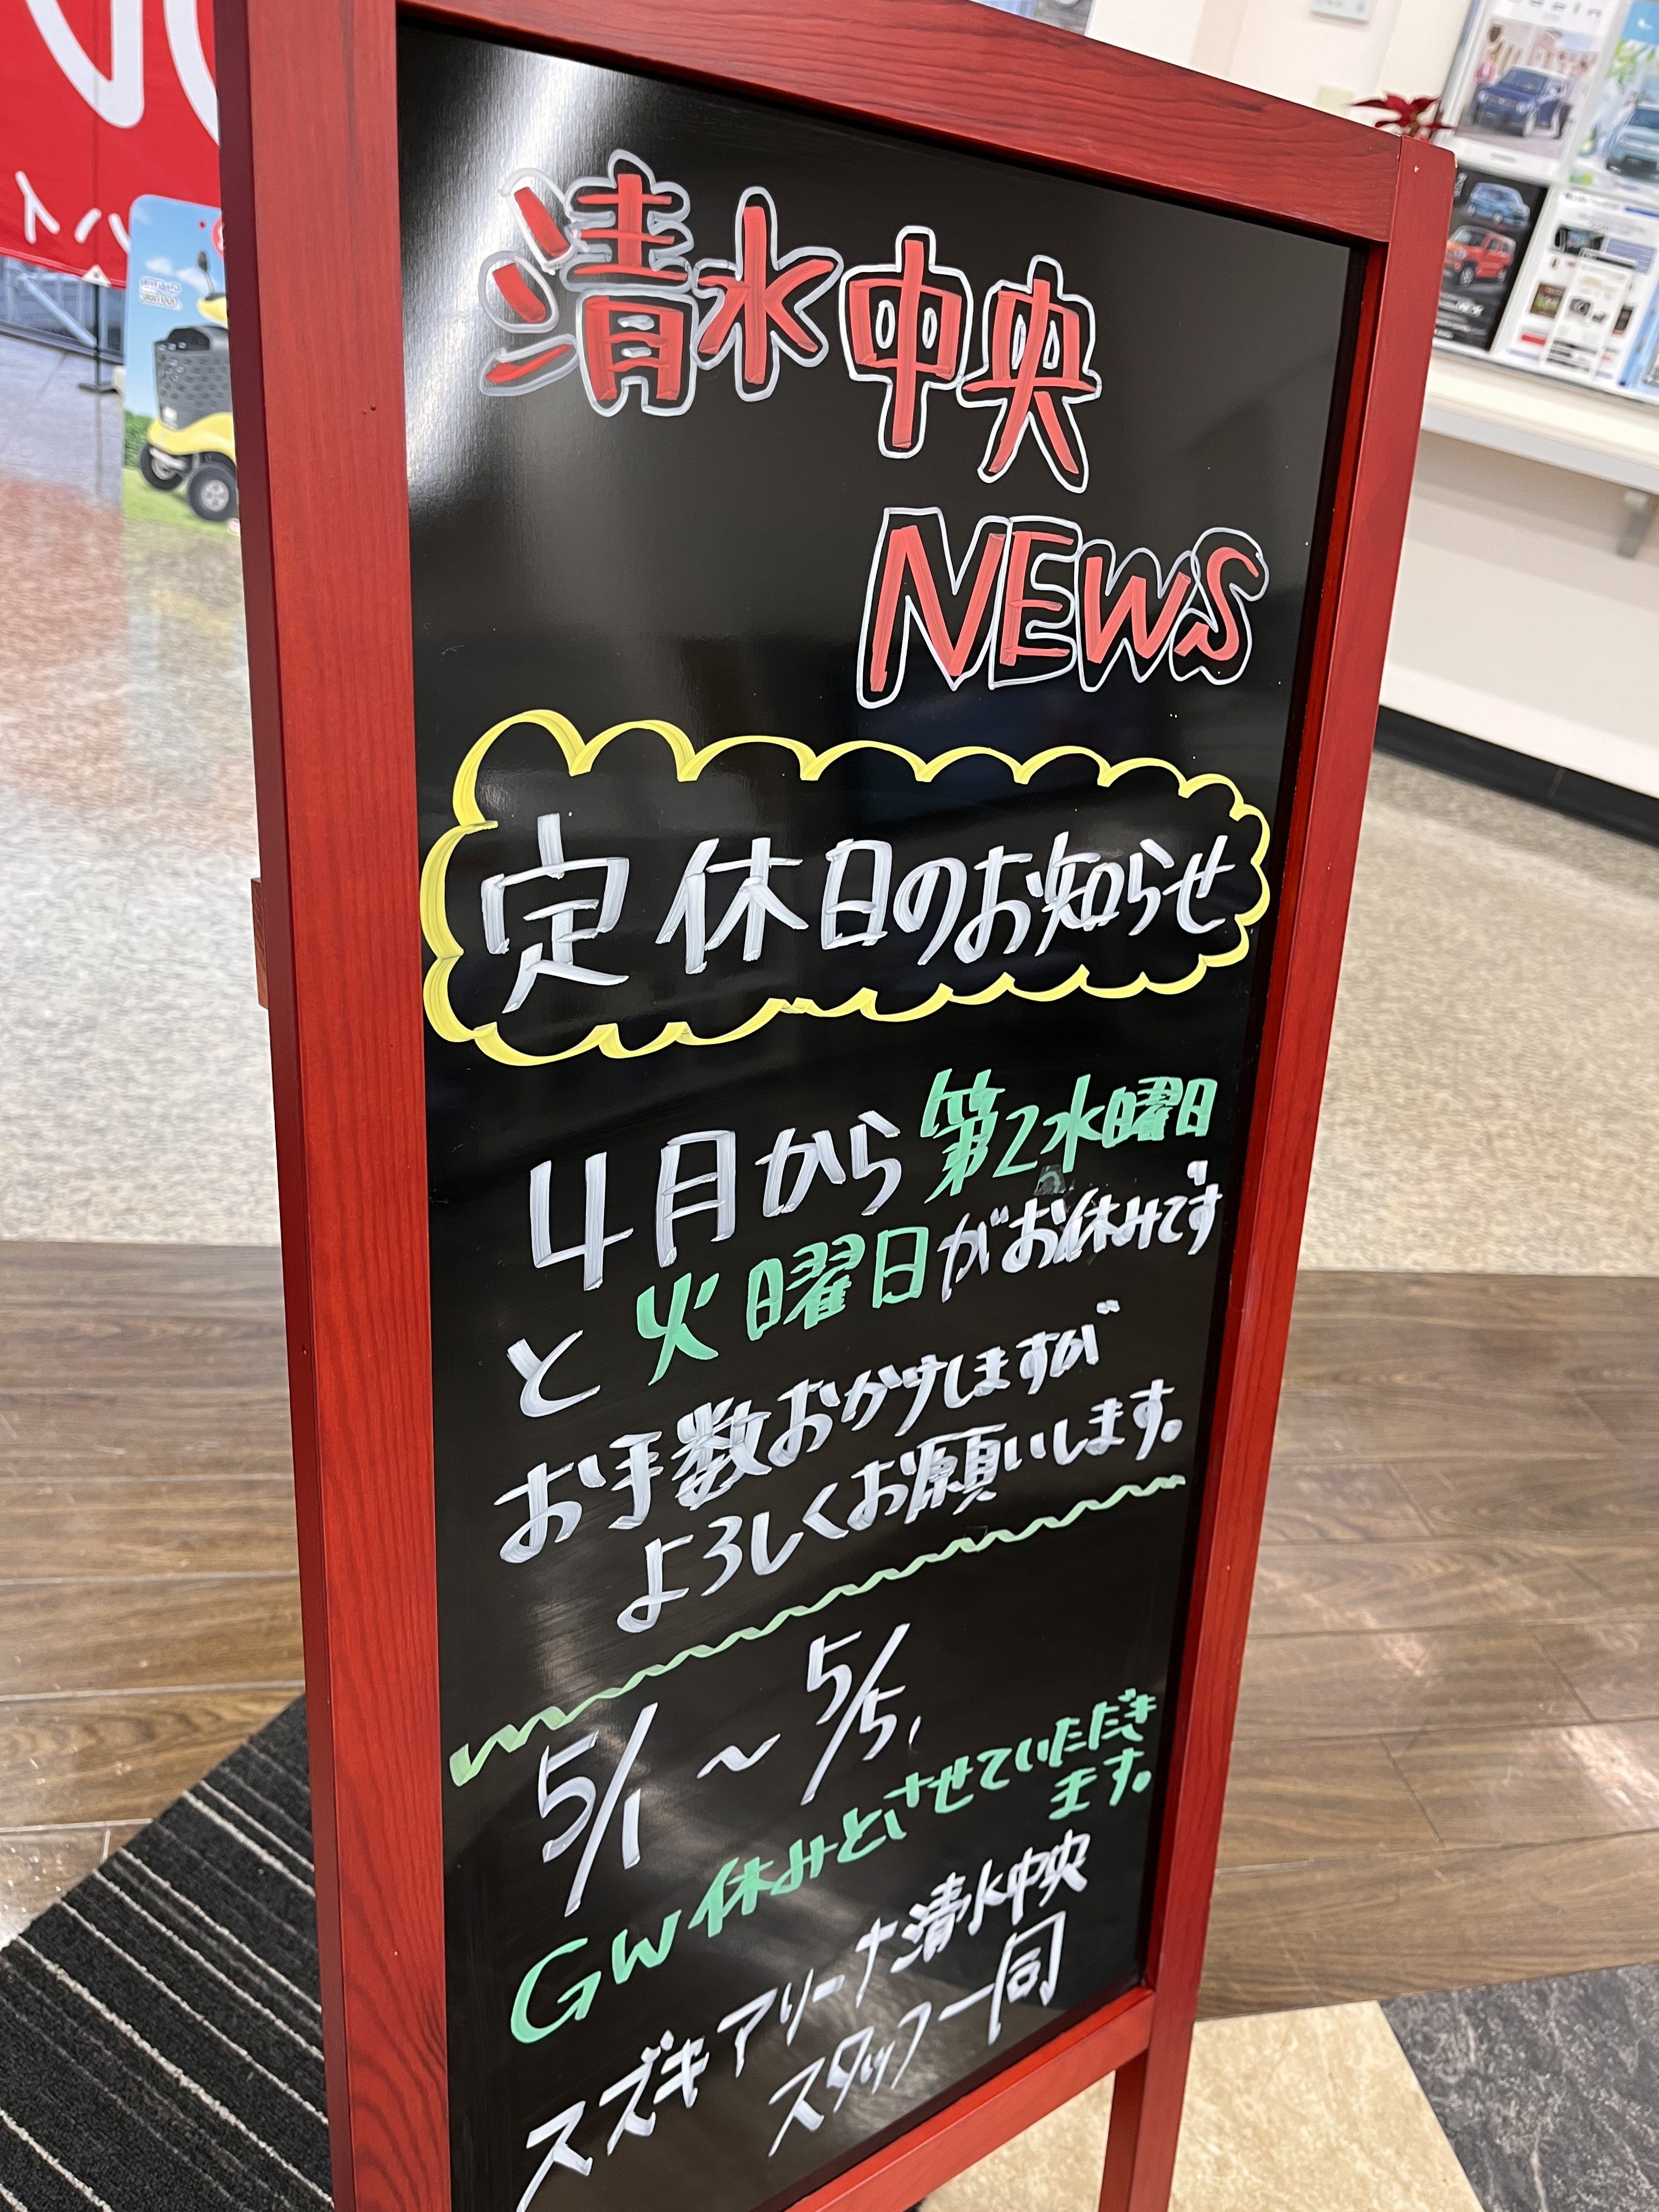 清水中央
NEWS
定休日のお知らせ
4月から第2水曜日
と火曜日がお休みです
お手数おかけしますが
よろしくお願いします。
5/1～5/5,
GW休みとさせていただき
ます。
スズキアリーナ清水中央
スタッフ一同